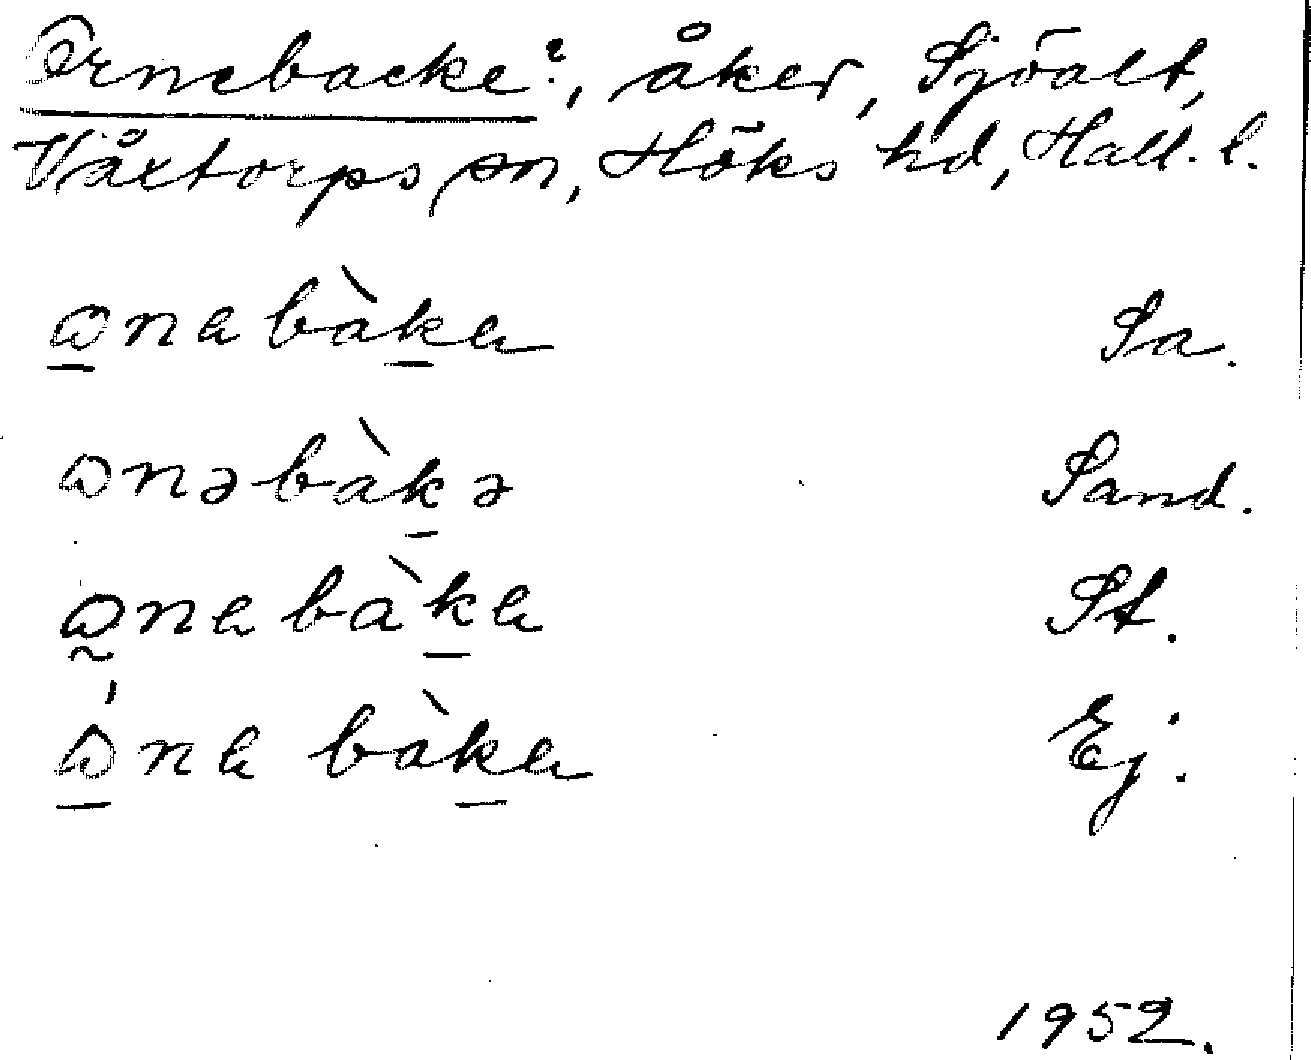 Örnebacke?, åker, Sjöalt,
Våxtorps sn, Höks hd, Hall. l.
ɷnabàka Sa.
ɷnəbàkə Sand.
ɷnabàka St.
ɷ́na bàka Ej.
1952.